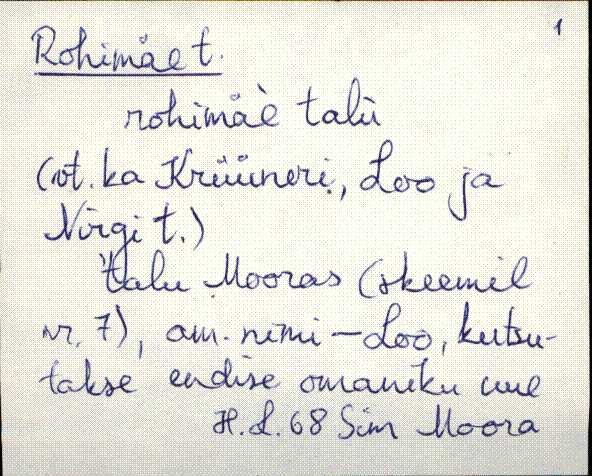 1
Rohimäe t.
rohimäè talù
(vt. ka Krüüneri, Loo ja
Nirgi t.)
talu Mooras (skeemil
nr. 7), am. nimi - Loo, kutsu-
takse endise omaniku
H. L. 68 Sim Moora